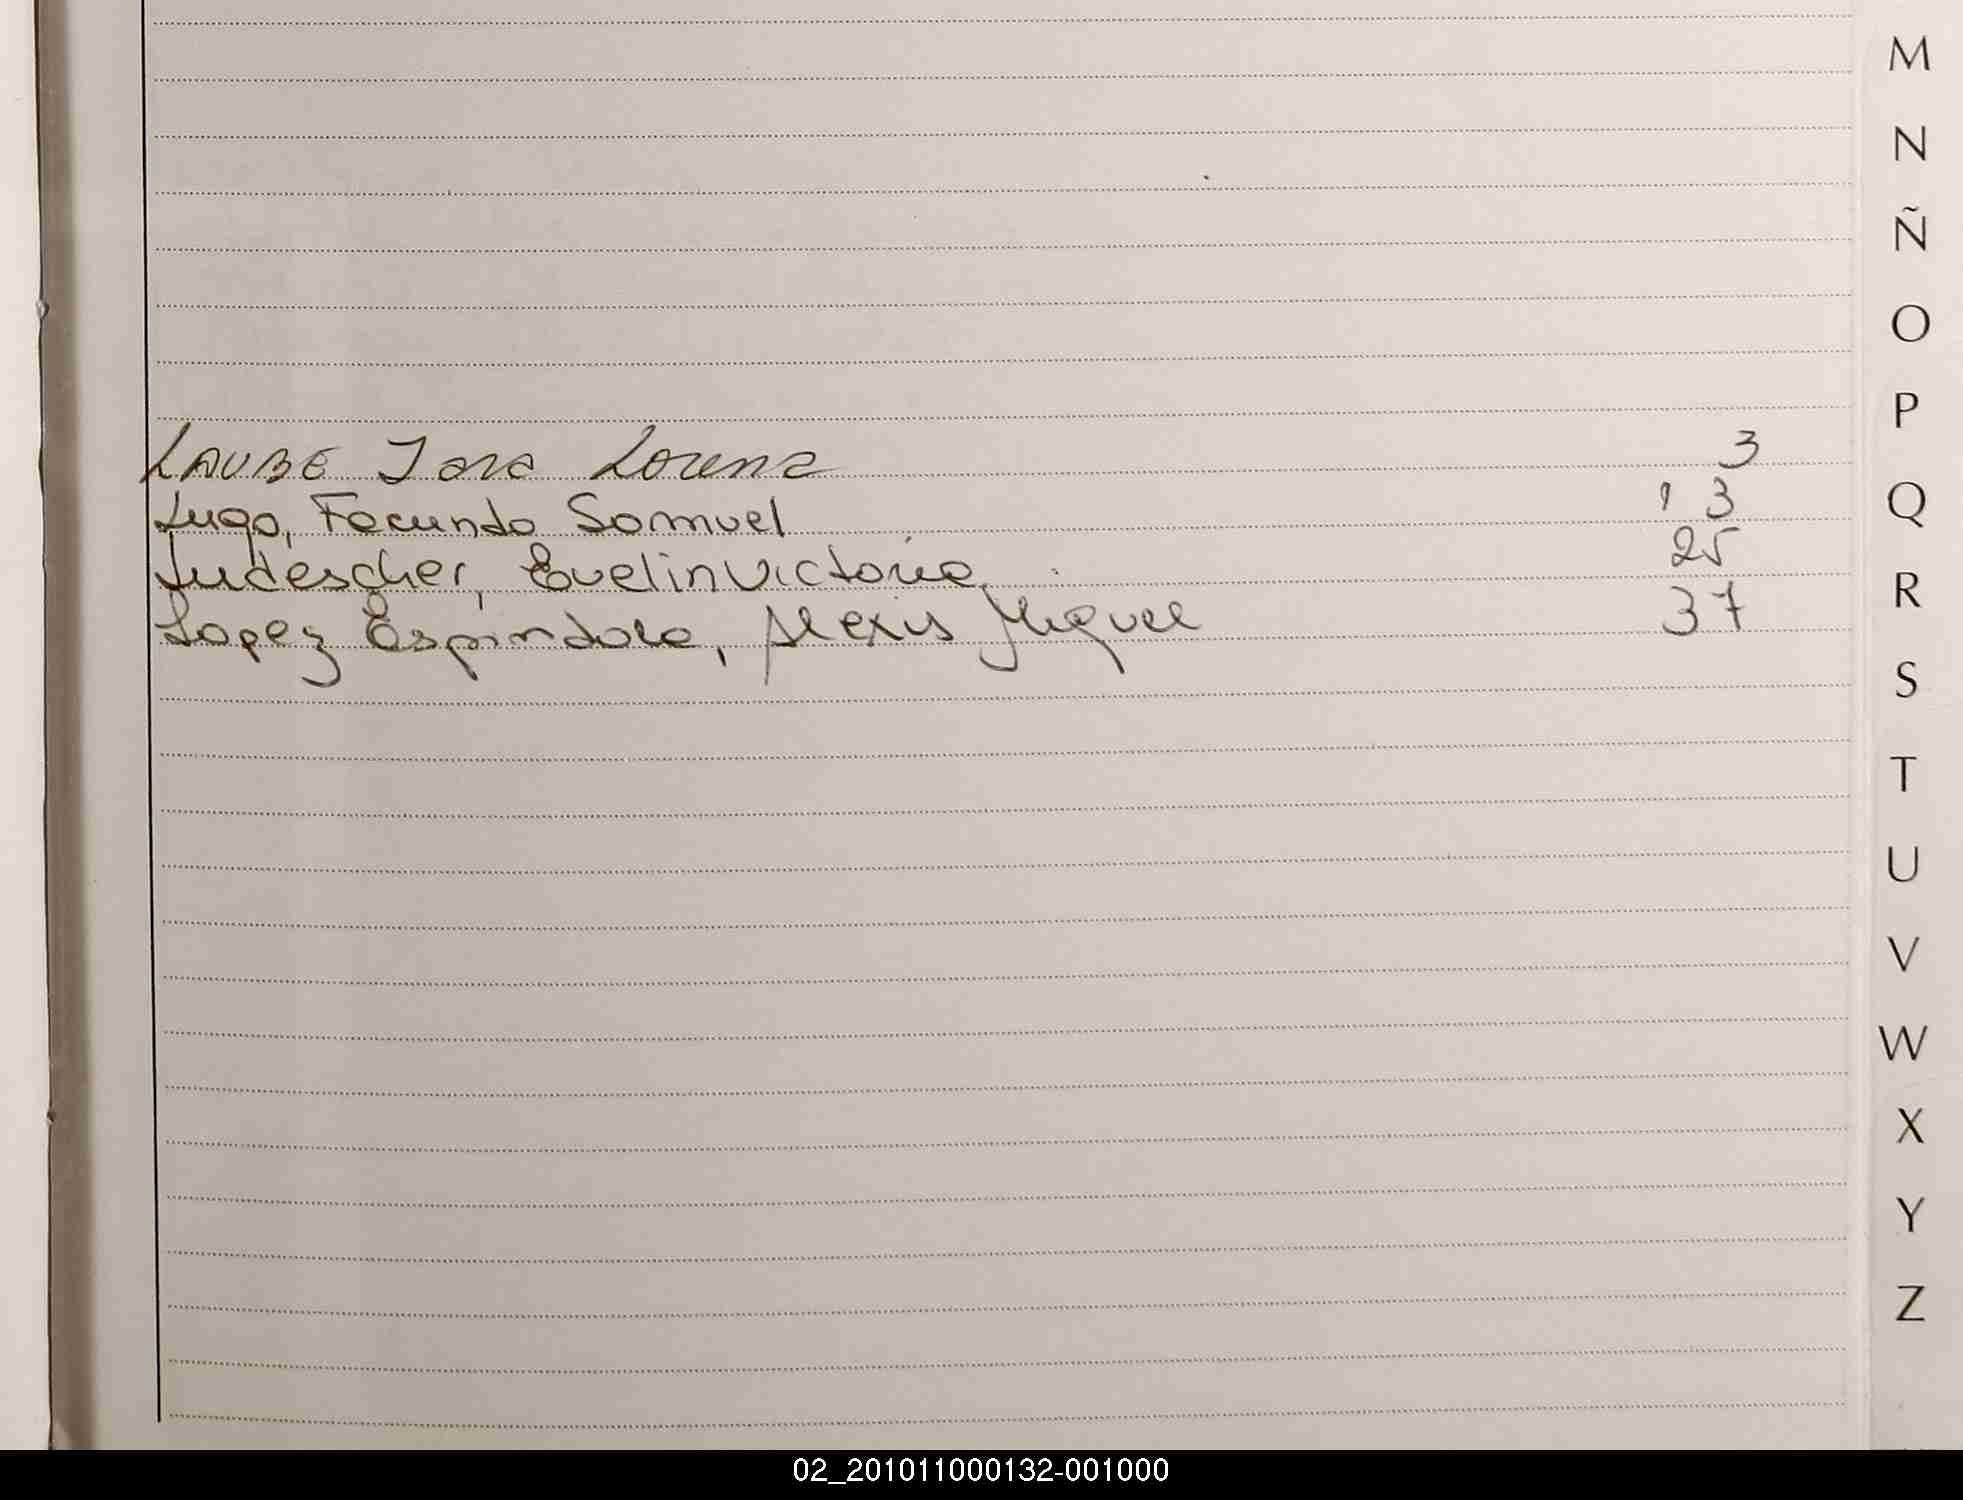 LAUBE Iara Lorena 3
Lugo, Facundo Samuel 13
Ludescher, Evelin Victoria 25
Lopez Espindola, Alexis Miguel 37
M
N
Ñ
O
P
Q
R
S
T
U
V
W
X
Y
Z
02_201011000132-001000